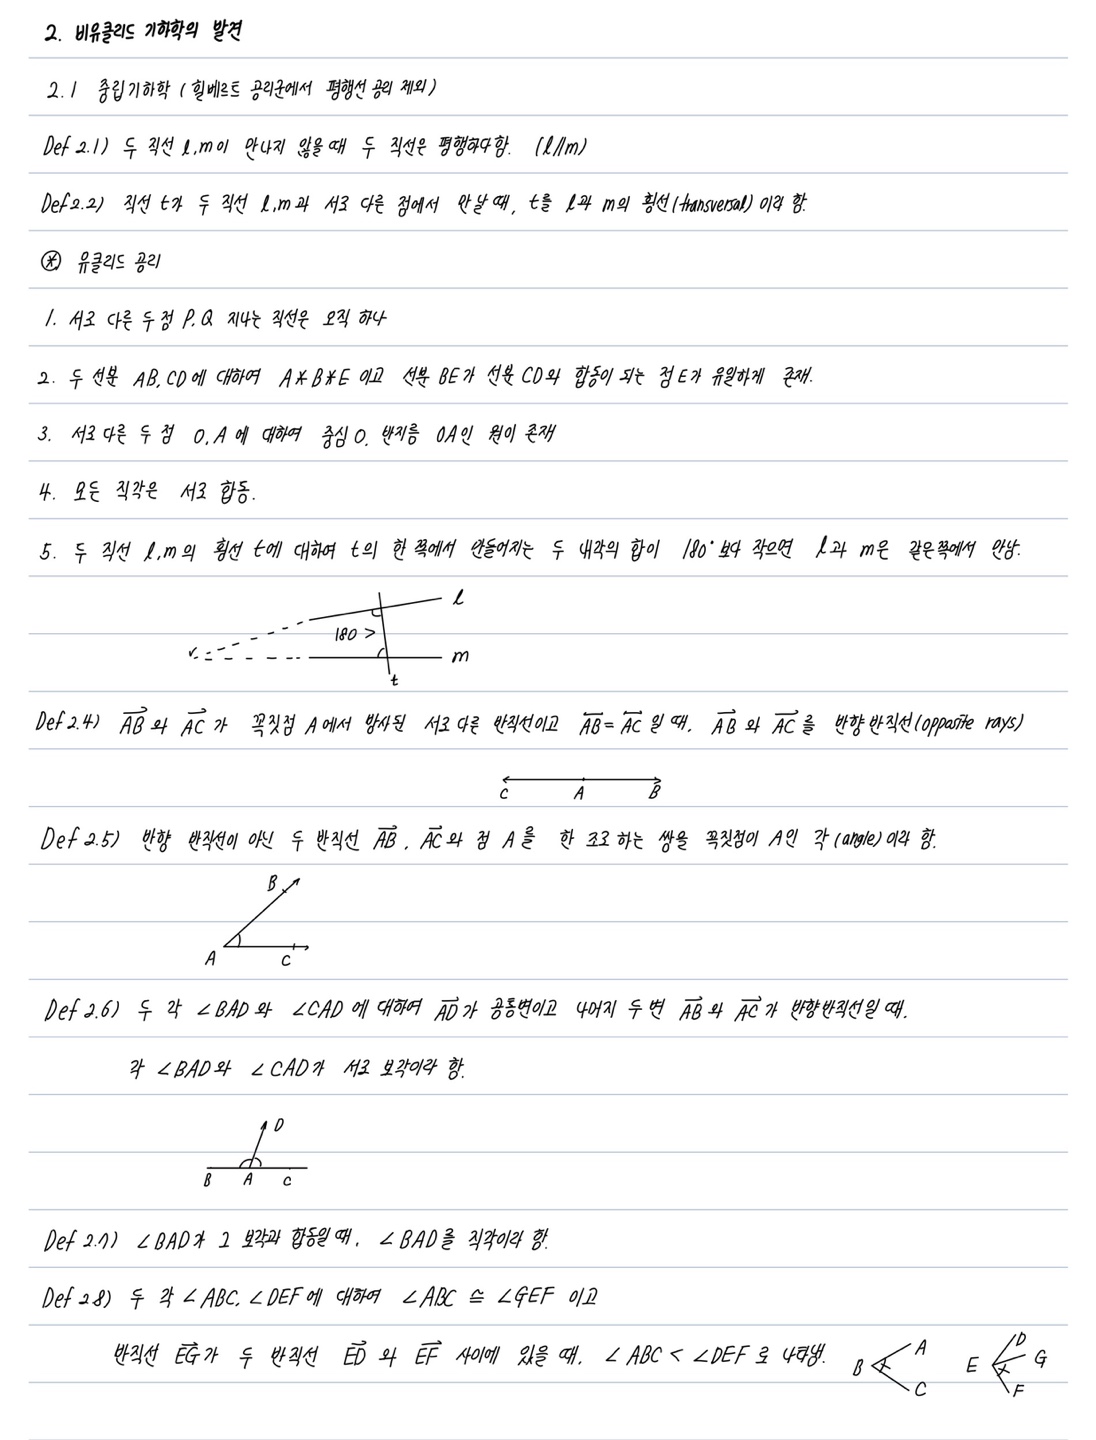 2. 비유클리드 기하학의 발견
2.1 중립기하학 (힐베르트 공리군에서 평행선 공리 제외)
Def 2.1) 두 직선 l, m이 만나지 않을 때 두 직선은 평행하다 함. (l//m)
Def 2.2) 직선 t가 두 직선 l, m과 서로 다른 점에서 만날 때, t를 l과 m의 횡선(transversal) 이라 함.
⊛ 유클리드 공리
1. 서로 다른 두 점 P, Q 지나는 직선은 오직 하나
2. 두 선분 AB, CD에 대하여 A*B*E 이고 선분 BE가 선분 CD와 합동이 되는 점 E가 유일하게 존재.
3. 서로 다른 두 점 O, A에 대하여 중심 O, 반지름 OA인 원이 존재
4. 모든 직각은 서로 합동.
5. 두 직선 l, m의 횡선 t에 대하여 t의 한 쪽에서 만들어지는 두 내각의 합이 180° 보다 작으면 l과 m은 같은쪽에서 만남.
l
180 >
m
t
Def 2.4) $\overrightarrow{AB}$ 와 $\overrightarrow{AC}$ 가 꼭짓점 A에서 방사된 서로 다른 반직선이고 $\overleftrightarrow{AB}$ = $\overleftrightarrow{AC}$ 일 때, $\overrightarrow{AB}$ 와 $\overrightarrow{AC}$ 를 반향 반직선(opposite rays)
C A B
Def 2.5) 반향 반직선이 아닌 두 반직선 $\overrightarrow{AB}$, $\overrightarrow{AC}$와 점 A를 한 조로 하는 쌍을 꼭짓점이 A인 각 (angle) 이라 함.
B
A C
Def 2.6) 두 각 ∠BAD 와 ∠CAD 에 대하여 $\overrightarrow{AD}$가 공통변이고 나머지 두 변 $\overrightarrow{AB}$ 와 $\overrightarrow{AC}$ 가 반향반직선일 때,
각 ∠BAD와 ∠CAD가 서로 보각이라 함.
D
B A C
Def 2.7) ∠BAD가 그 보각과 합동일 때, ∠BAD를 직각이라 함.
Def 2.8) 두 각 ∠ABC, ∠DEF에 대하여 ∠ABC ≅ ∠GEF 이고
반직선 $\overrightarrow{EG}$가 두 반직선 $\overrightarrow{ED}$ 와 $\overrightarrow{EF}$ 사이에 있을 때, ∠ABC < ∠DEF로 나타냄.
B A C E D G F